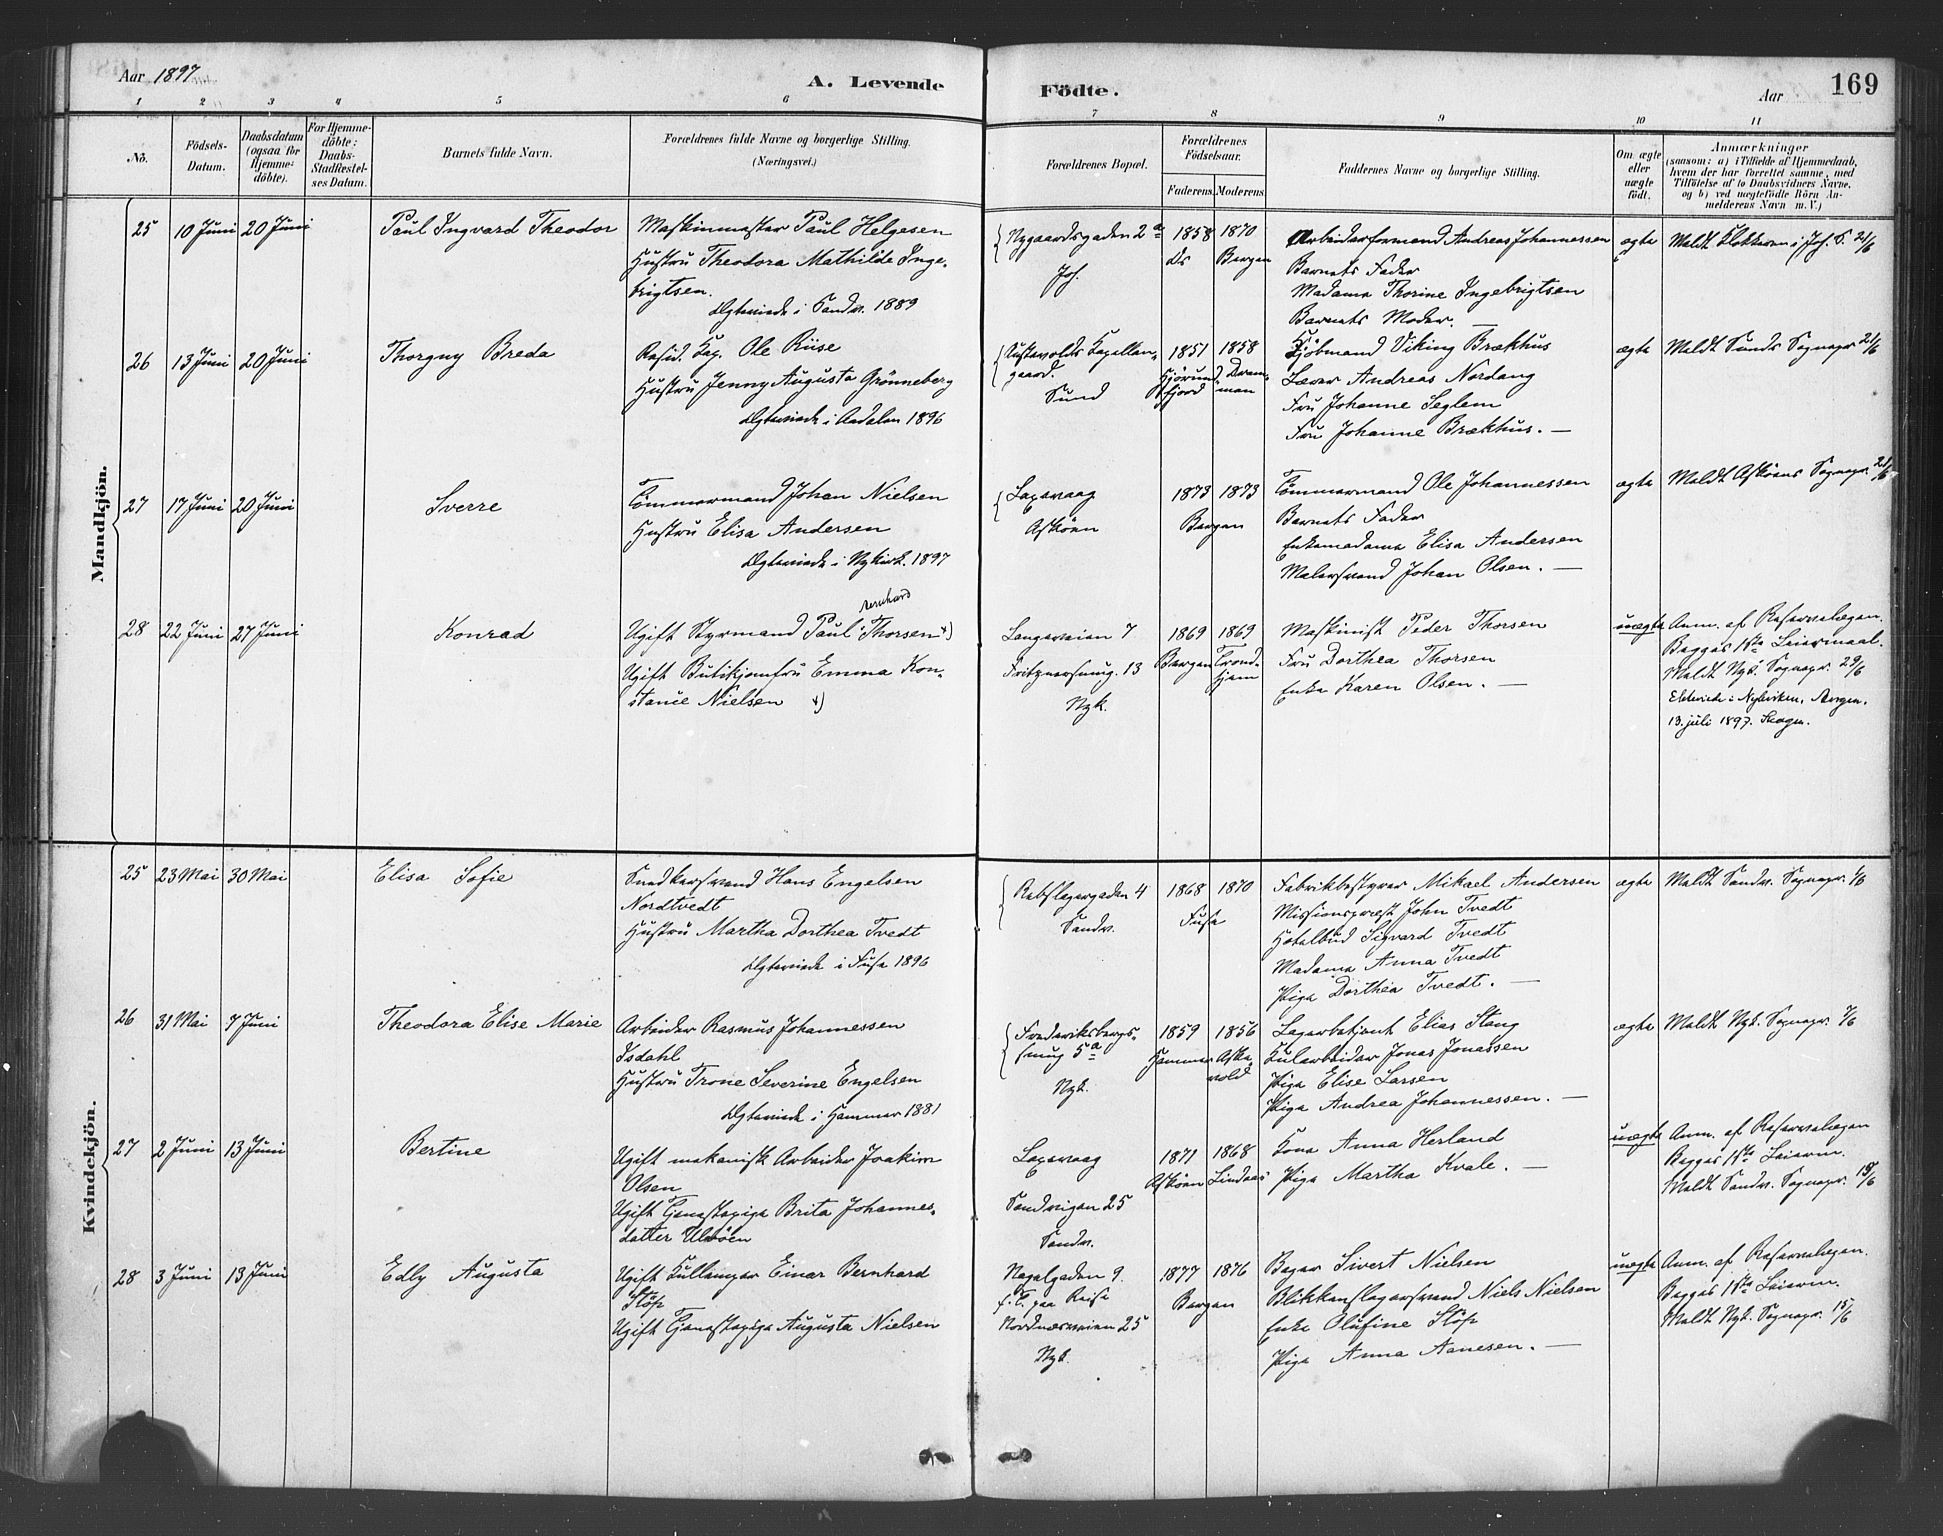 Aar 1897
A. Levende
Födte.
Aar
169
1 2 3 4 5 6 7 8 9 10 11
No.
Födsels-Datum.
Daabsdatum (ogsaa for Hjemme-döbte).
For Hjemme-döbte: Daabs-Stadfæstel-ses Datum.
Barnets fulde Navn.
Forældrenes fulde Navne og borgerlige Stilling. (Næringsvei.)
Forældrenes Bopæl.
Forældrenes Födselsaar.
Faderens. Moderens.
Faddernes Navne og borgerlige Stilling.
Om ægte eller uægte födt.
Anmærkninger
(saasom: a) i Tilfælde af Hjemmedaab, hvem der har forrettet samme, med Tilföielse af to Daabsvidners Navne, og b) ved uægtefödte Börn An-melderens Navn m. V.)
Mandkjön.
25 10 Juni 20 Juni Paul Ingvard Theodor
Maskinmester Paul Helgesen
Hustru Theodora Mathilde Inge-
brigtsen.
Ægteviede i Sandv. 1889
Nygaardsgaden 2a
Joh.
1858 1870
Ds Bergen
Arbeiderformand Andreas Johannessen
Barnets Fader
Madame Thorine Ingebrigtsen
Barnets Moder. —
ægte
Meldt Klokkeren i Joh. S. 21/6
26 13 Juni 20 Juni Thorguy Breda
Resid. Kap. Ole Riise
Hustru Jenny Augusta Grönneberg
Ægteviede i Aadalen 1896
Kapellan-
gaard.
Sund
1851 1858
Hjörund- Dram-
fjord men
Kjöbmand Viking Brækhus
Lærer Andreas Nordang
Fru Johanne Seglem
Fru Johanne Brækhus. —
ægte
Meldt Sunds Sognepr. 21/6
27 17 Juni 20 Juni Sverre
Tömmermand Johan Nielsen
Hustru Elisa Andersen
Ægteviede i Nykirk. 1897
Laxevaag
Asköen
1873 1873
Bergen
Tömmermand Ole Johannessen
Barnets Fader
Enkemadame Elisa Andersen
Malersvend Johan Olsen. —
ægte
Meldt Asköens Sognepr. 21/6
28 22 Juni 27 Juni Konrad
Bernhard
Ugift Styrmand Paul Thorsen +)
Ugift Butikjomfru Emma Kon-
stance Nielsen +)
Langeveien 7
Fritznersmug. 13
Nyk.
1869 1869
Bergen Trond-
hjem
Maskinist Peder Thorsen
Fru Dorthea Thorsen
Enke Karen Olsen. —
uægte
Anm. af Reservelægen.
Begges 1ste Leiermaal.
Meldt Nyk. Sognepr. 29/6
Ekteviede i Nykirken, Bergen,
13. juli 1897.
Kvindekjön.
25 23 Mai 30 Mai Elisa Sofie
Snedkersvend Hans Engelsen
Nordtvedt
Hustru Martha Dorthea Tvedt
Ægteviede i Fusa 1896
Rebslagergaden 4
Sandv.
1868 1870
Fusa
Fabrikbestyrer Mikael Andersen
Missionspræst John Tvedt
Hotelbud Sigvard Tvedt
Madame Anna Tvedt
Pige Dorthea Tvedt. —
ægte
Meldt Sandv. Sognepr. 1/6
26 31 Mai 7 Juni Theodora Elise Marie
Arbeider Rasmus Johannessen
Isdahl
Hustru Trone Severine Engelsen
Ægteviede i Hammer 1881
Frederiksbergs-
smug 5a
Nyk.
1859 1856
Hammer Aske-
vold
Lagerbetjent Elias Stang
Kularbeider Jonas Jonassen
Pige Elise Larsen
Pige Andrea Johannessen. —
ægte
Meldt Nyk. Sognepr. 7/6
27 2 Juni 13 Juni Bertine
Ugift mekanisk Arbeider Joakim
Olsen
Ugift Tjenestepige Brita Johannes-
datter Ulvöen
Laxevaag
Sandvigen 25
Sandv.
1871 1868
Asköen Lindaas
Kone Anna Herland
Pige Martha Kvale. —
uægte
Anm. af Reservelægen
Begges 1ste Leierm.
Meldt Sandv. Sognepr. 15/6
28 3 Juni 13 Juni Edly Augusta
Ugift Kullemper Einar Bernhard
Stöp
Ugift Tjenestepige Augusta Nielsen
Nagelgaden 9.
f. T. paa Reise
Nordnæsveien 25
Nyk.
1877 1876
Bergen
Bager Sivert Nielsen
Blikkenslagersvend Niels Nielsen
Enke Olufine Stöp
Pige Anna Aanesen. —
uægte
Anm. af Reservelægen.
Begges 1ste Leierm.
Meldt Nyk. Sognepr. 15/6